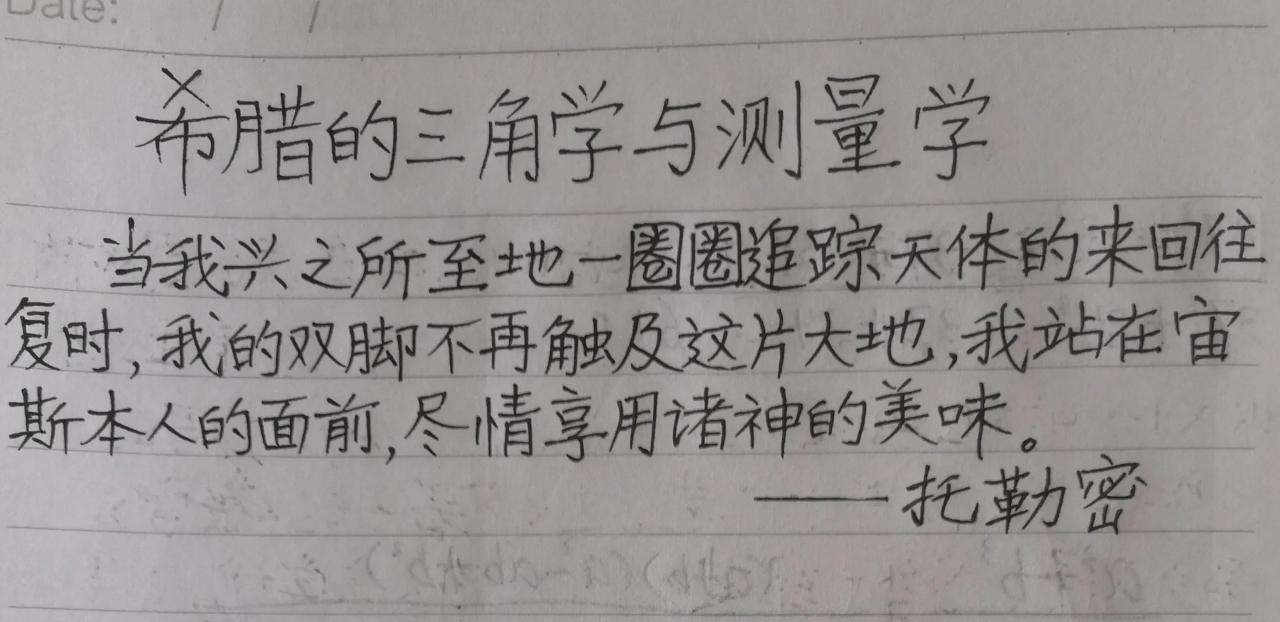 Date: / /
希腊的三角学与测量学
当我兴之所至地一圈圈追踪天体的来回往
复时,我的双脚不再触及这片大地,我站在宙
斯本人的面前,尽情享用诸神的美味。
——托勒密